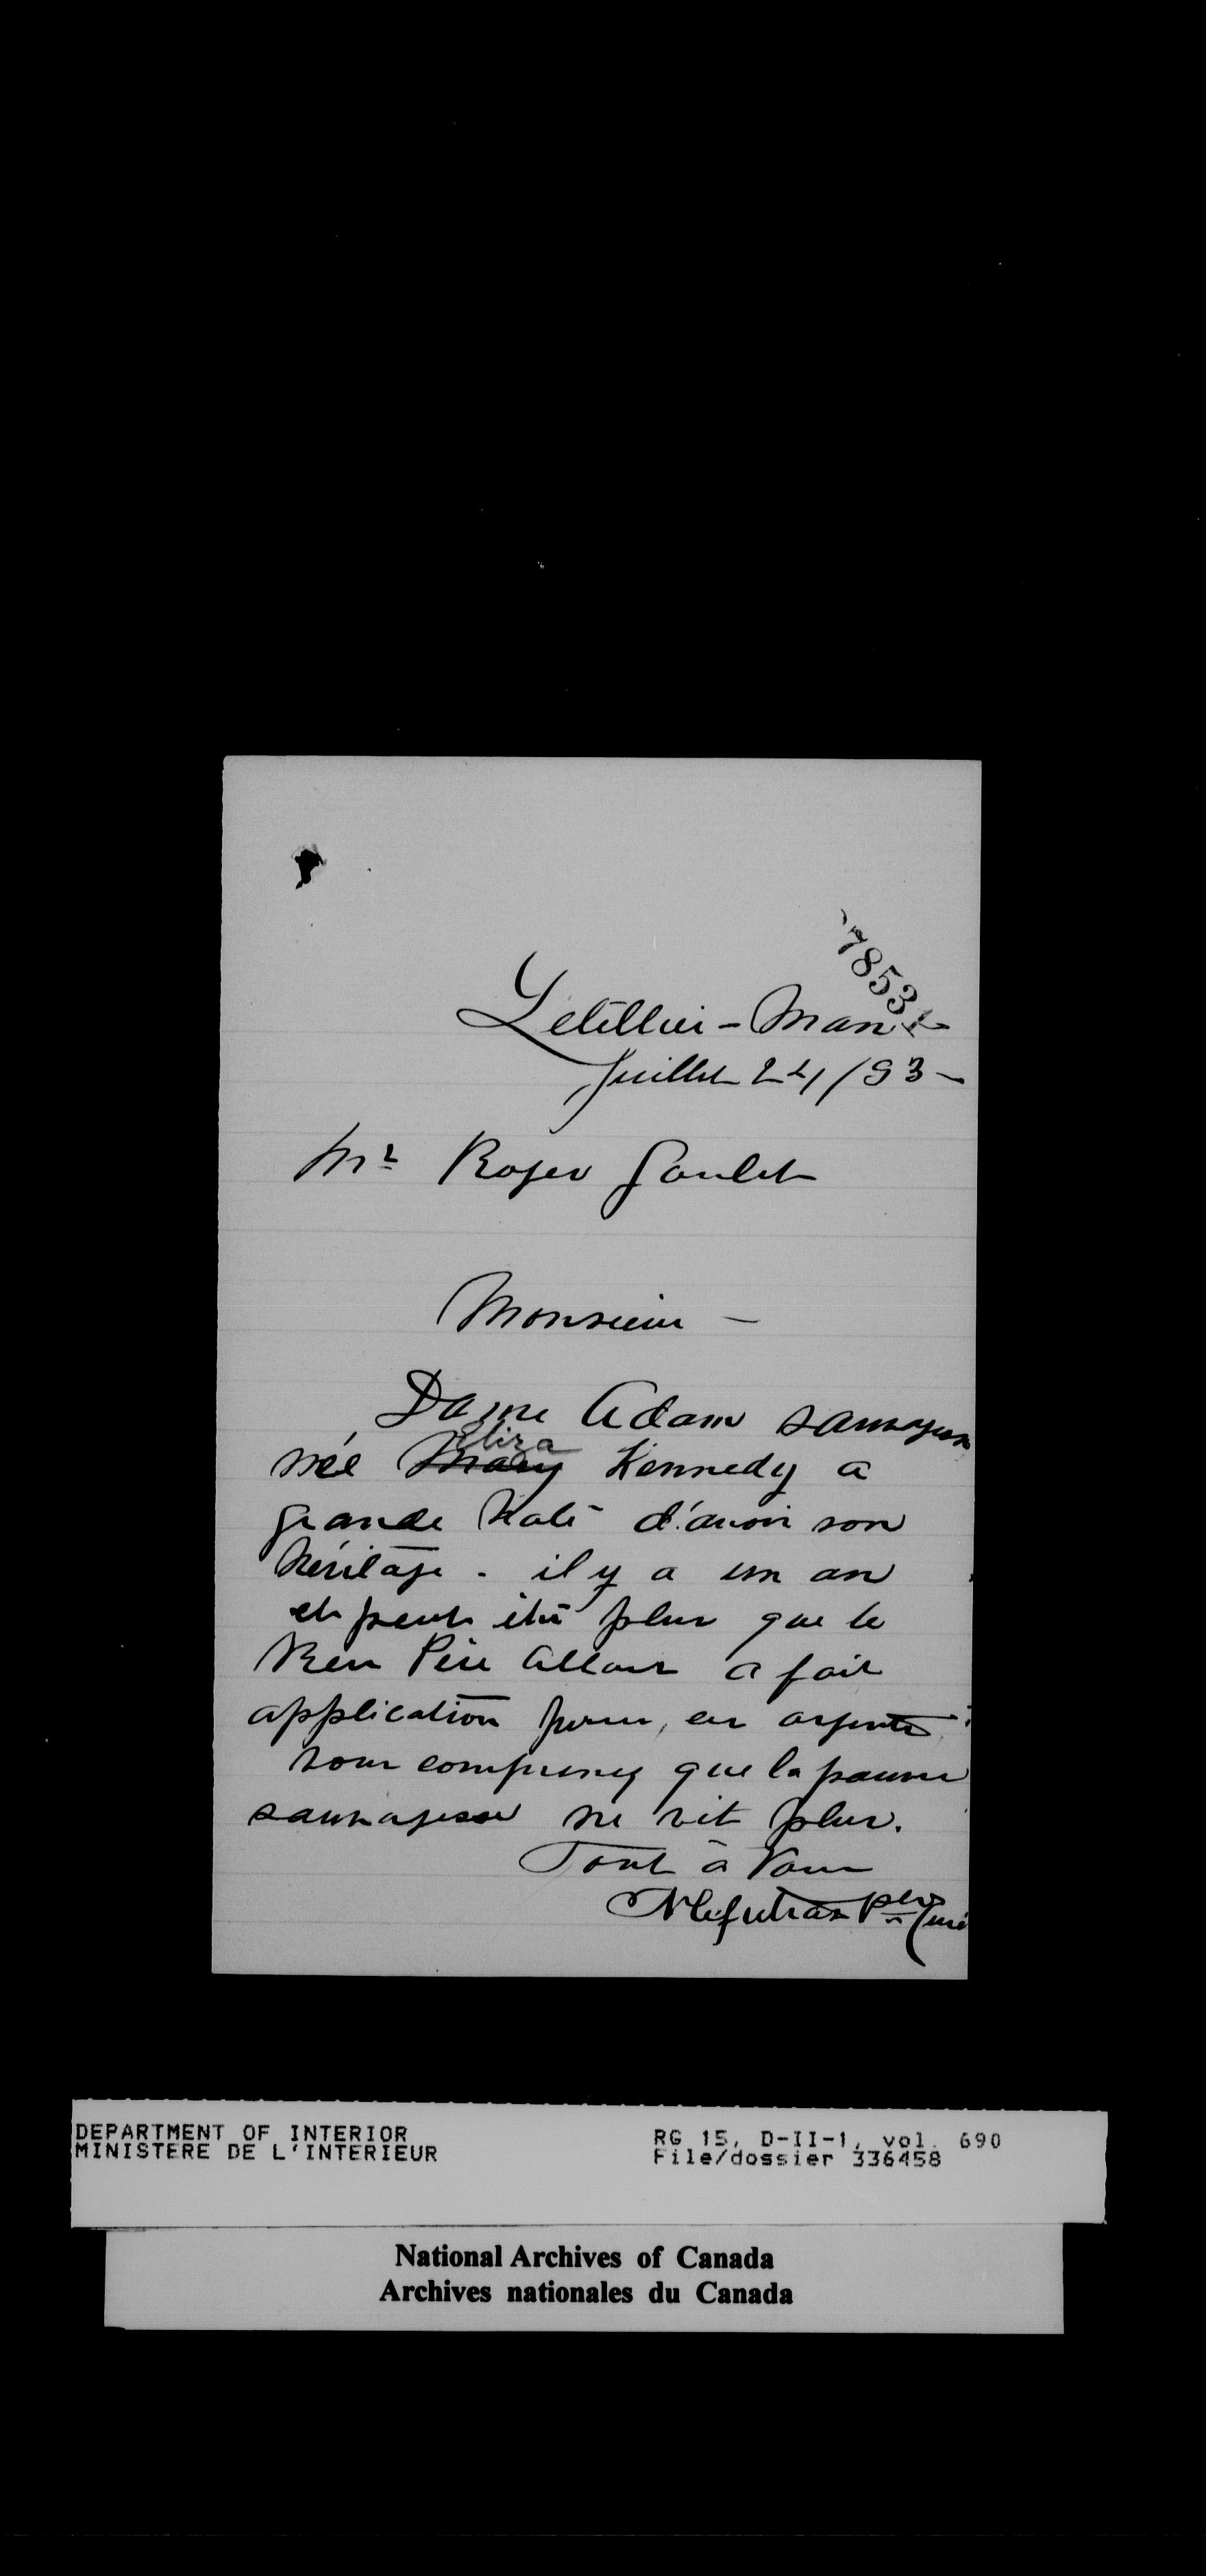 78531
Letellier - Man
Juillet 24/93 -
Mr Roger Goulet
Monsieur -
Dame Adam sauvagesse
Eliza
née Mary Kennedy a
grande hate d'avoir son
héritage. il y a un an
et peut être plus que le
Rev Père Allard a fait
application pour,
vous comprenez que la pauvre
sauvagesse ne vit plus.
Tout à Vous
Ptre Curé
DEPARTMENT OF INTERIOR
MINISTERE DE L'INTERIEUR
RG 15, D-II-1, vol. 690
File/dossier 336458
National Archives of Canada
Archives nationales du Canada